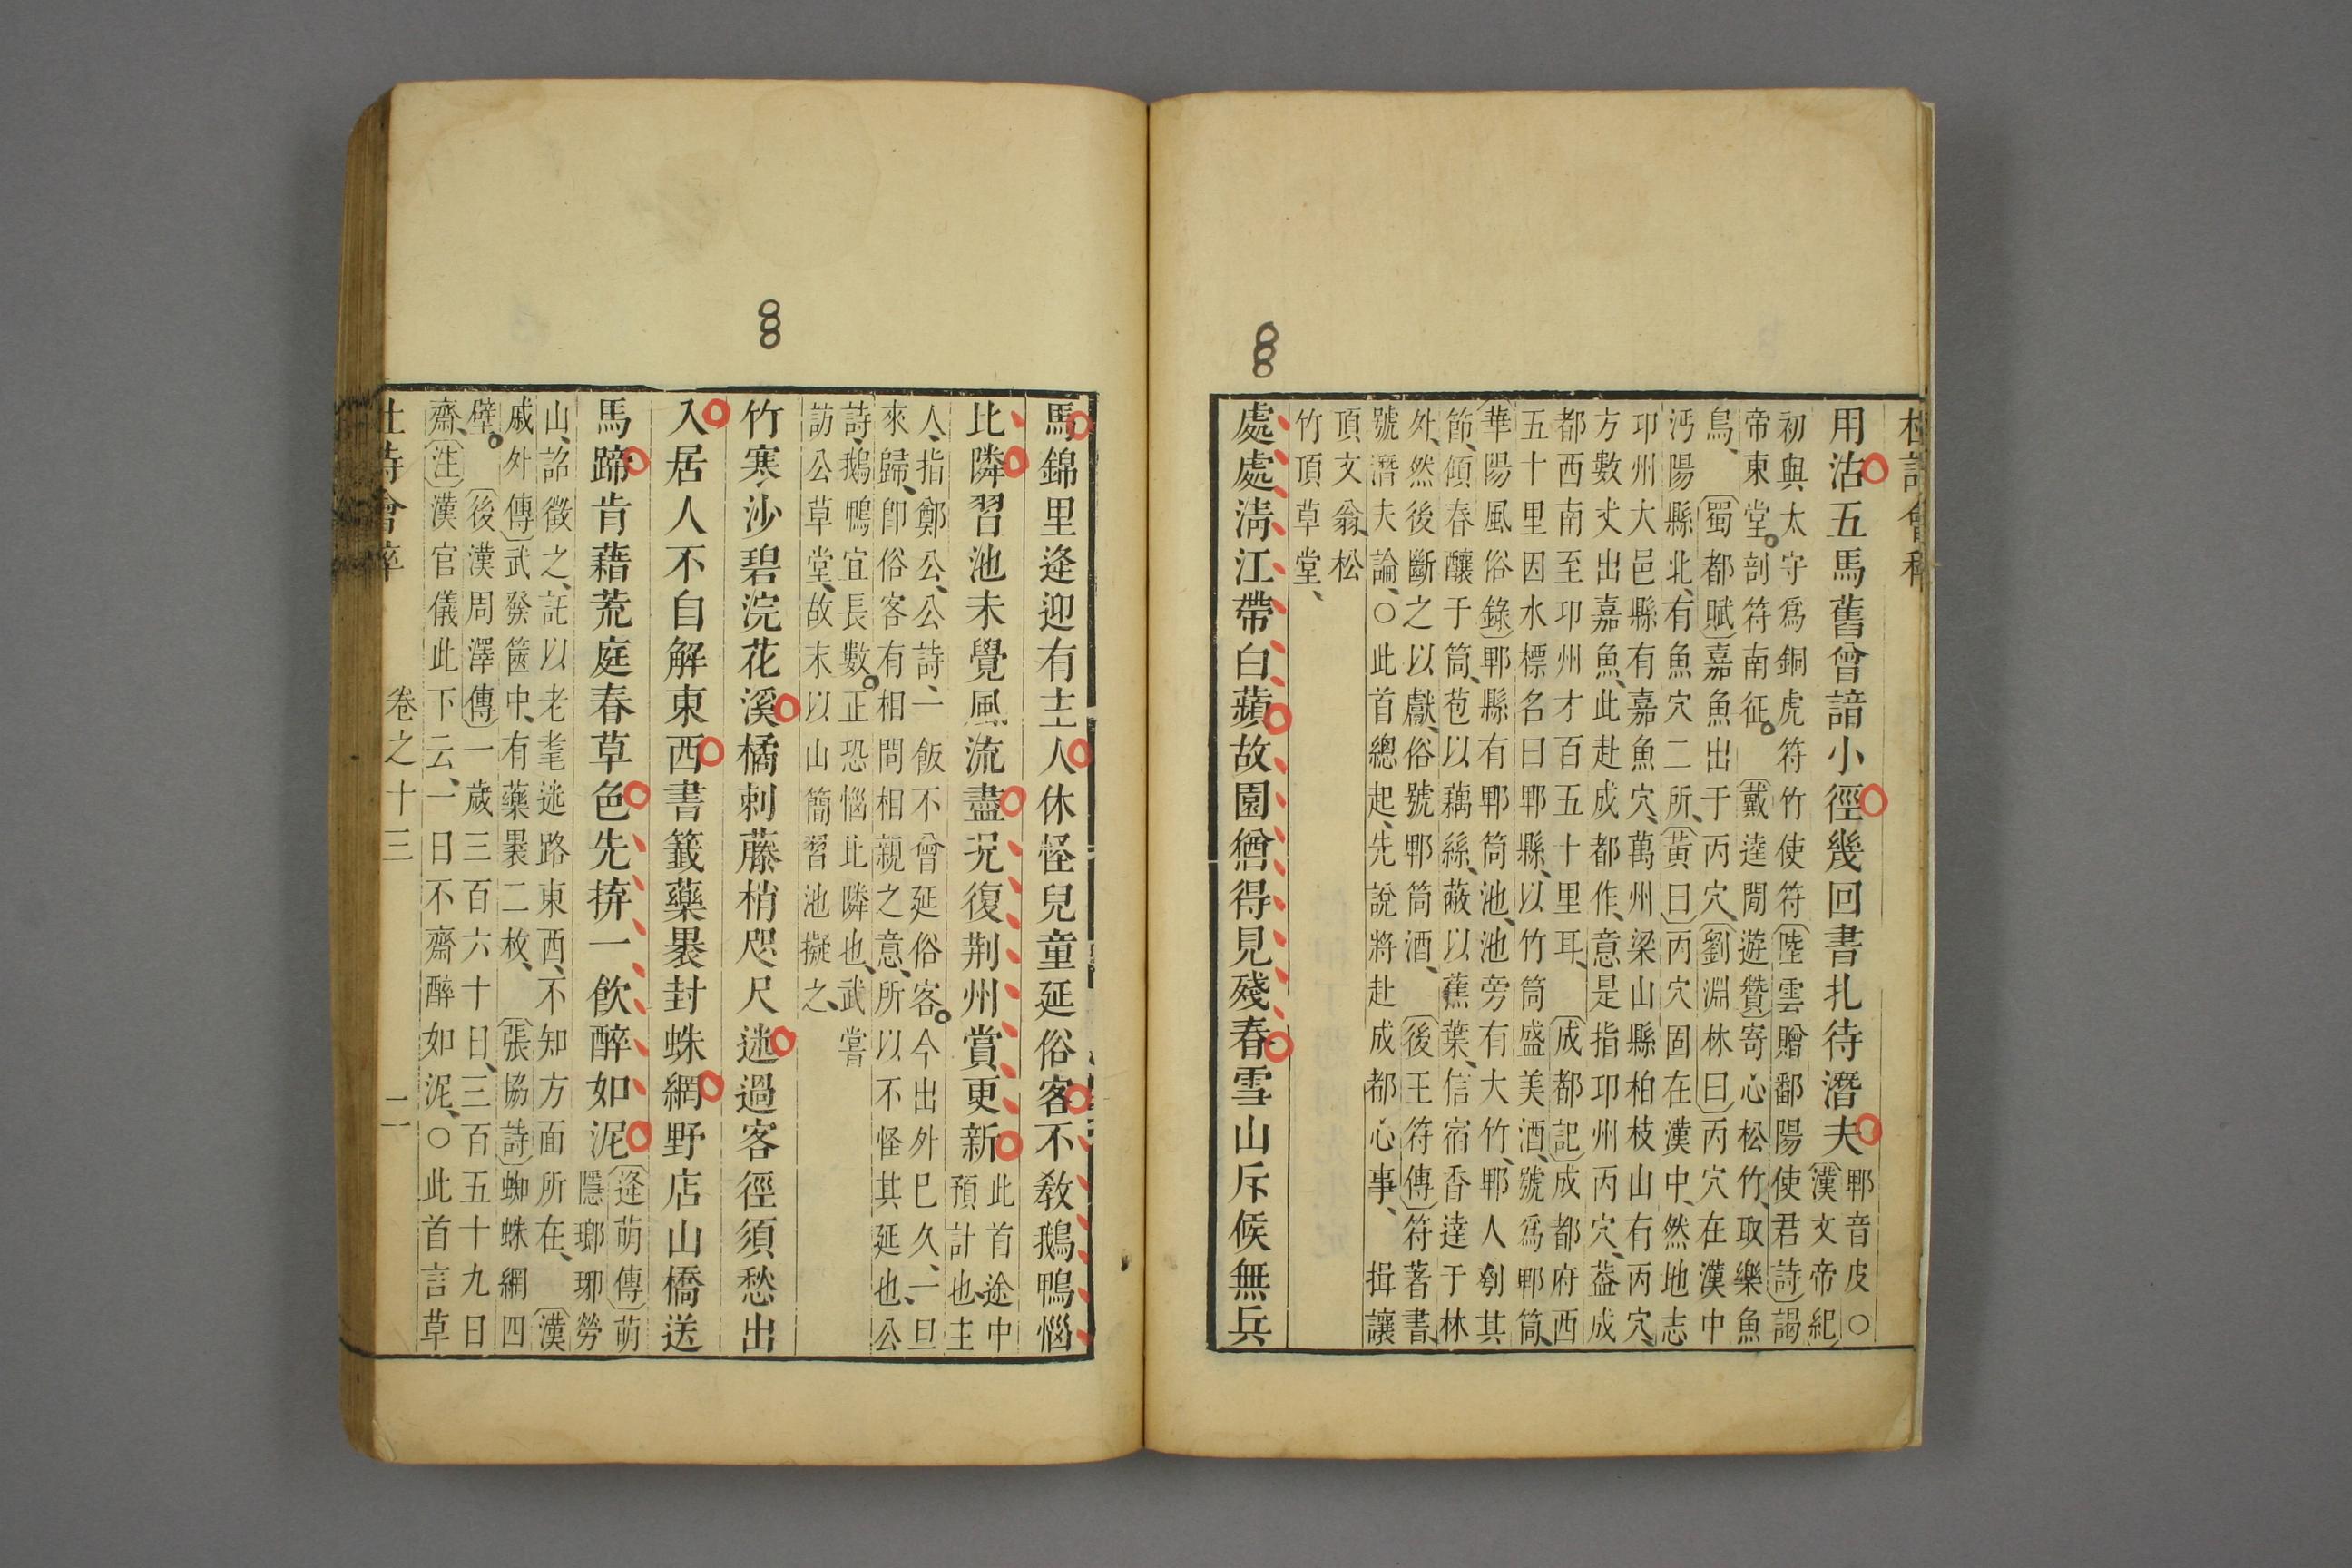 用沽五馬舊曾諳小徑幾回書札待潛夫郫音皮○
漢文帝紀
初與太守爲銅虎符竹使符陸雲贈鄱陽使君詩謁
帝東堂剖符南征 戴逵閒遊贊寄心松竹、取樂魚
鳥、 蜀都賦嘉魚出于丙穴、劉淵林曰丙穴在漢中
沔陽縣北、有魚穴二所、黃曰丙穴固在漢中、然地志
卭州大邑縣有嘉魚穴、萬州梁山縣柏枝山有丙穴、
方數丈出嘉魚、此赴成都作、意是指卭州丙穴、葢成
都西南至卭州才百五十里耳、 成都記成都府西
五十里因水標名曰郫縣、以竹筒盛美酒、號爲郫筒、
華陽風俗錄郫縣有郫筒池、池旁有大竹、郫人刳其
節、傾春釀于筒、苞以藕絲、蔽以蕉葉、信宿香達于林
外、然後斷之以獻、俗號郫筒酒、 後王符傳符著書、
號潛夫論、○此首總起、先說將赴成都心事、 揖讓
頂文翁、松
竹頂草堂、
處處淸江帶白蘋故園猶得見殘春雪山斥候無兵
馬錦里逢迎有主人休怪兒童延俗客不敎鵝鴨惱
比隣習池未覺風流盡況復荆州賞更新此首途中
預計也、主
人、指鄭公、公詩、一飯不曾延俗客今出外巳久、一旦
來歸、卽俗客有相問相親之意、所以不怪其延也、公
詩、鵝鴨宜長數正恐惱比隣也、武嘗
訪公草堂、故末以山簡習池擬之、
竹寒沙碧浣花溪橘刺藤梢咫尺迷過客徑須愁出
入居人不自解東西書籤藥裹封蛛網野店山橋送
馬蹄肯藉荒庭春草色先拚一飮醉如泥逢萌傳萌
隱瑯琊勞
山、詔徵之、託以老耄迷路東西、不知方面所在、 漢
戚外傳武發篋中、有藥裹二枚、 張協詩蜘蛛網四
壁 後漢周澤傳一歲三百六十日、三百五十九日
齋、注漢官儀此下云、一日不齋醉如泥、○此首言草
杜詩會稡 卷之十三 二